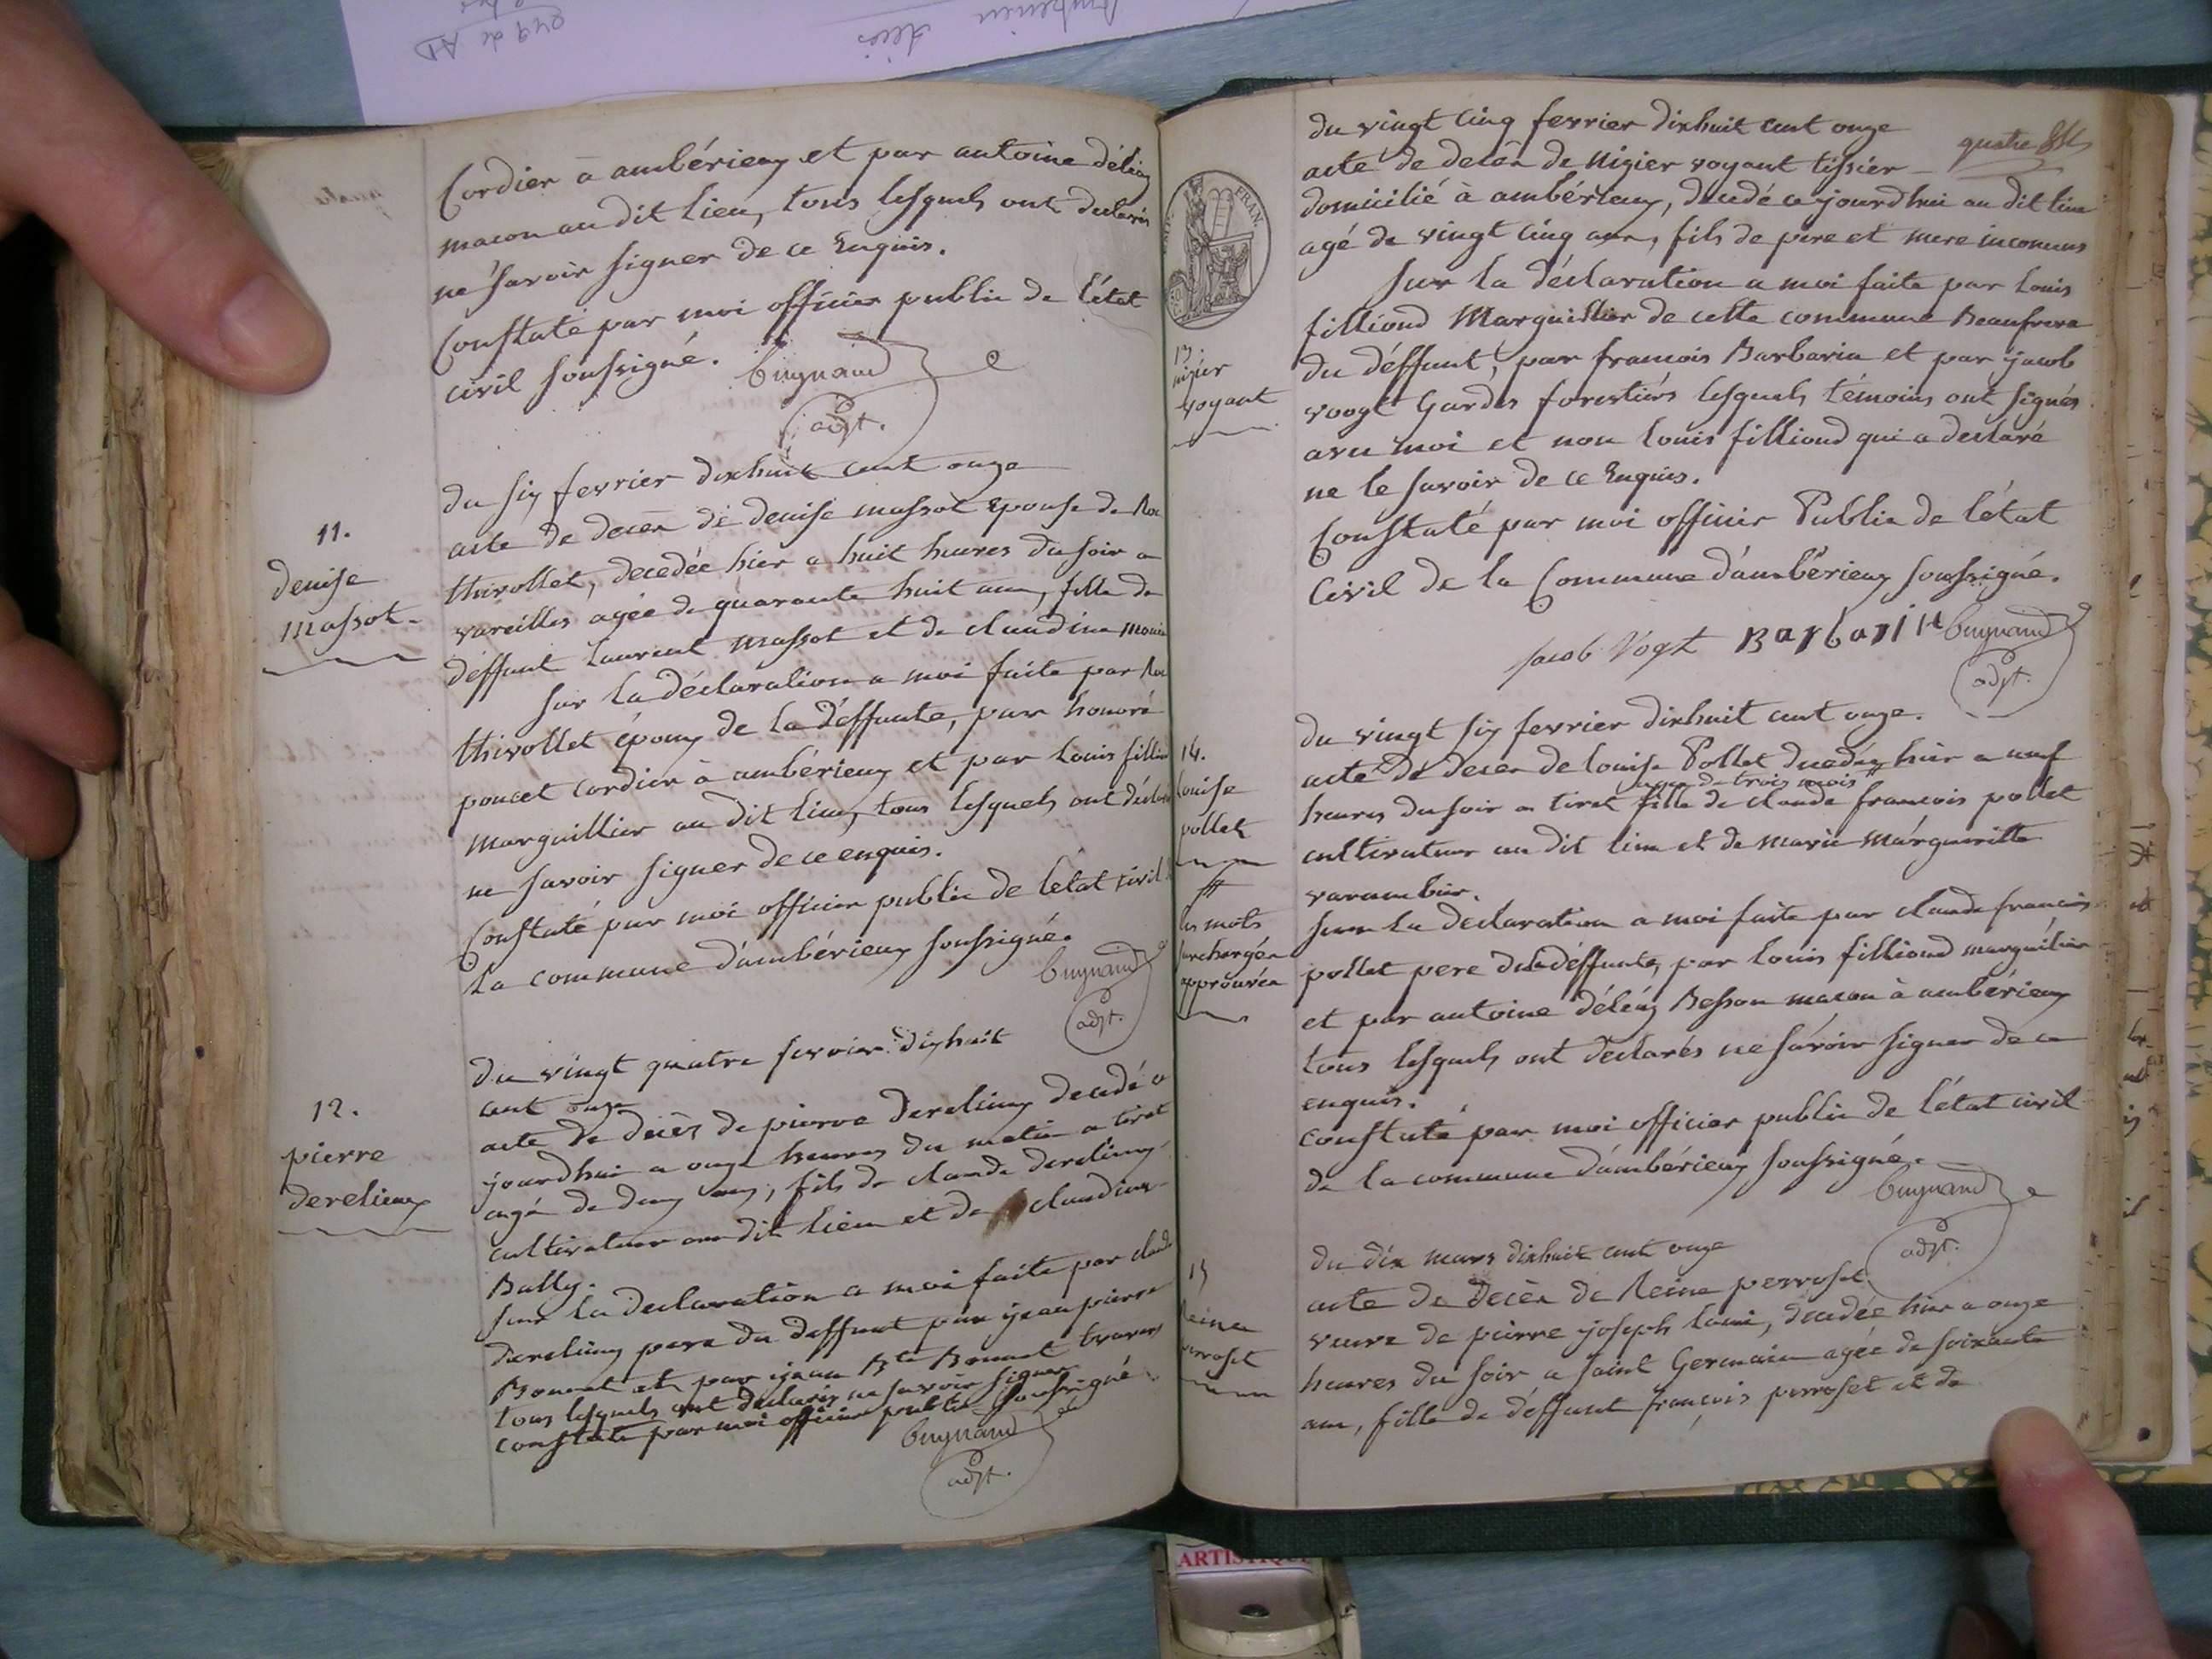 Cordier à ambérieux et par antoine déléaz
macon au dit lieu, tous lesquels ont declarés
ne savoir signer de ce Enquis.
Constaté par moi officier public de l'état
civil soussigné. bugnand
adjt.
11.
denise
massot.
du six fevrier dixhuit cent onze
acte de decès de denise massot Epouse de
thivollet, decedée hier a huit heures du soir a
vareilles agée de quarante huit ans, fille de
déffunt laurent massot et de claudine
sur la déclaration a moi faite par
thivollet époux de la déffunte, par honoré
poncet cordier à ambérieux et par Louis filliod
marguillier au dit lieu, tous lesquels ont déclaré
ne savoir signer de ce enquis.
Constaté par moi officier public de l'état civil
la commune d'ambérieux soussigné.
bugnand
adjt.
12.
pierre
derelieux
du vingt quatre fevrier dixhuit
cent onze
acte de decès de pierre derelieux decedé a
jourdhui a onze heures du matin a tiret
agé de deux ans, fils de claude derelieux
cultivateur au dit lieu et de claudine
Bally.
sur la declaration a moi faite par claude
derelieux pere du deffunt par jean pierre
Bonnet et par jean Bte Bonnet
tous lesquels ont declarés ne savoir signer
constaté par moi officier public soussigné
bugnand
adjt.
quatre
FRAN.
13.
nizier
voyant
du vingt cinq fevrier dixhuit cent onze
acte de decès de Nizier voyant tissier
domicilié à ambérieux, decedé ce jourdhui au dit lieu
agé de vingt cinq ans, fils de pere et mere inconnus
sur la déclaration a moi faite par Louis
filliond Marguillier de cette commune Beaufrere
du déffunt, par francois Barbarin et par jacob
voogt Gardes forestiers lesquels témoins ont signés
avec moi et non Louis filliond qui a declaré
ne le savoir de ce Enquis.
Constaté par moi officier Public de l'état
Civil de la Commune d'ambérieux soussigné.
Jacob Vogt Barbarin bugnand
adjt.
14.
louise
pollet
les mots
surchargés
approuvés
du vingt six fevrier dixhuit cent onze.
acte de decès de louise Pollet decedée hier a neuf
agée de trois mois
heures du soir a tiret fille de claude francois pollet
cultivateur au dit lieu et de marie Margueritte
varambier.
sur la declaration a moi faite par claude francois
pollet pere de la déffunte, par louis filliond marguillier
et par antoine déléaz Besson macon à ambérieux
tous lesquels ont declarés ne savoir signer de ce
enquis.
constaté par moi officier public de l'état civil
de la commune d'ambérieux soussigné.
bugnand
adjt.
15
Reine
perroset
du dix mars dixhuit cent onze
acte de decès de Reine perroset
veuve de pierre joseph decedée hier a onze
heures du soir a saint Germain agée de soixante
ans, fille de déffunt françois perroset et de
ARTISTIQUE